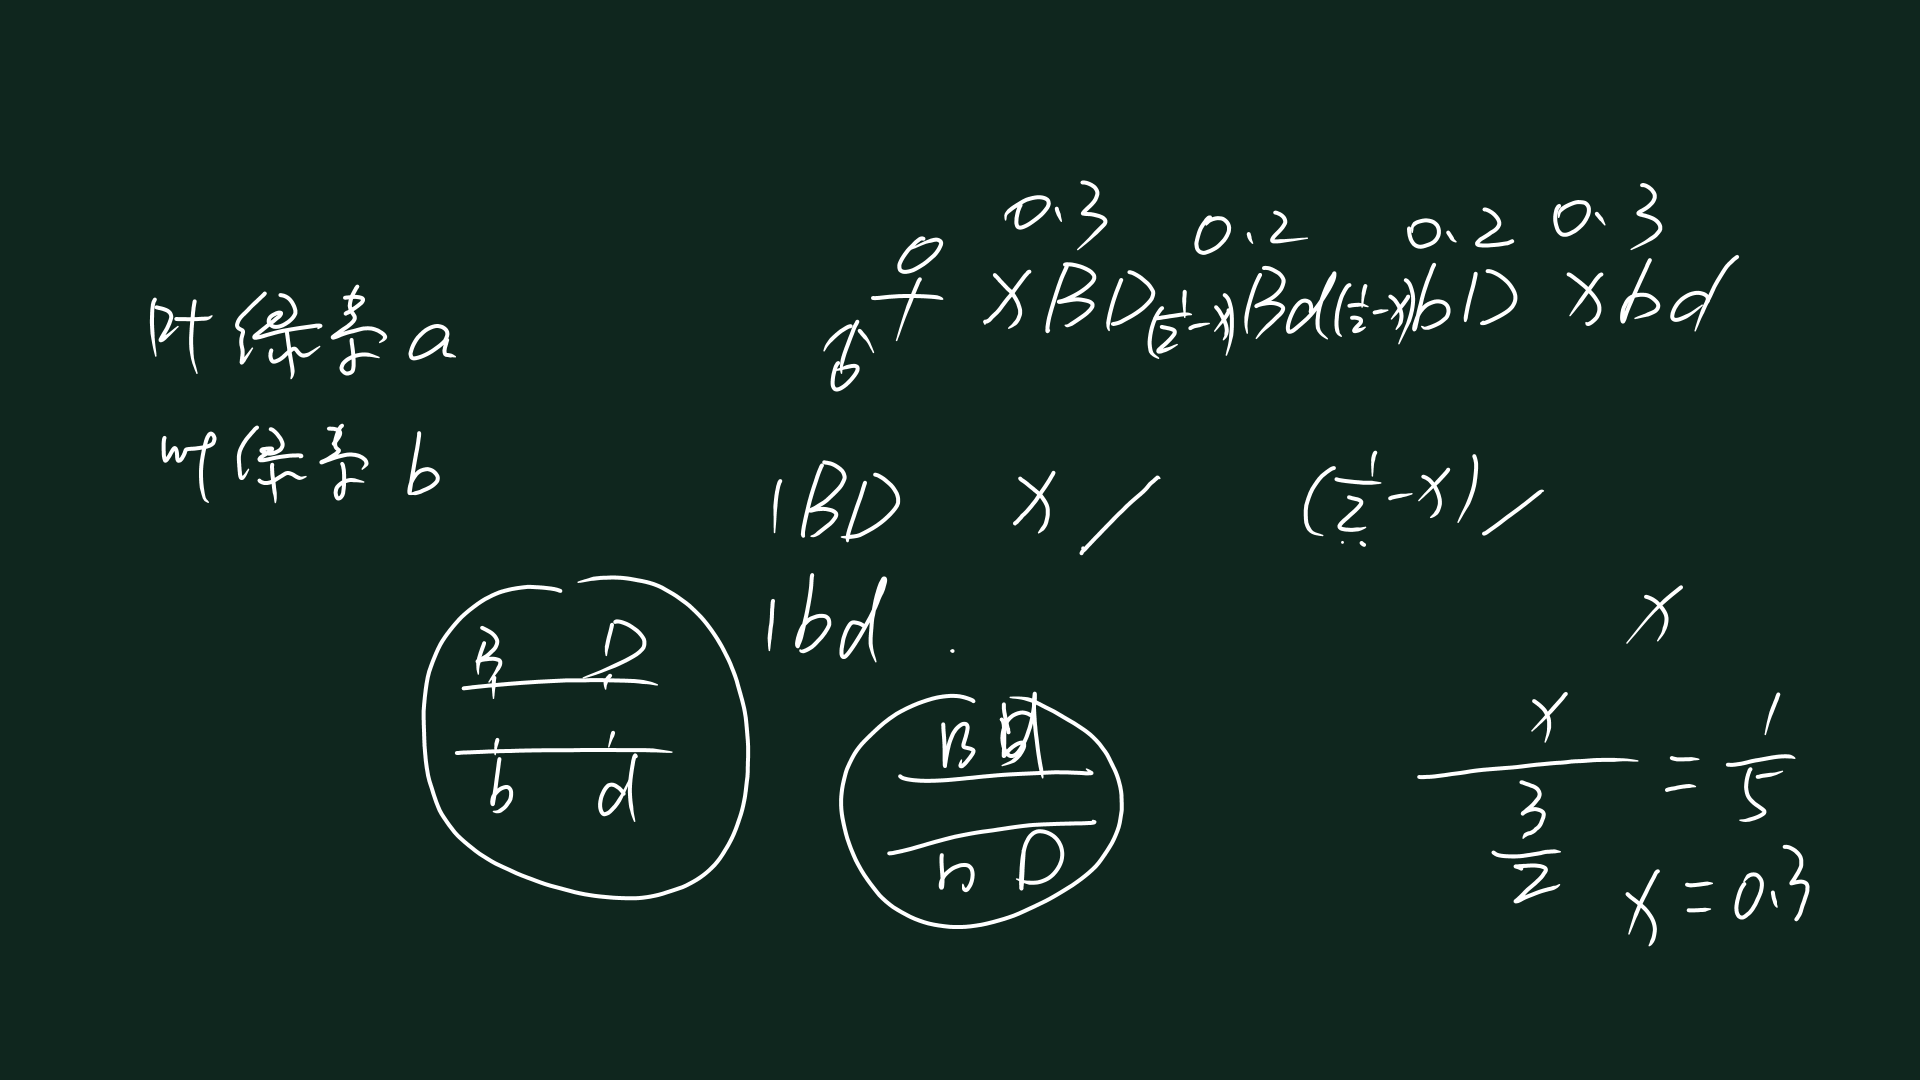 叶绿素a
叶绿素b
0.3 0.2 0.2 0.3
♀ xBD (1/2-x)Bd (1/2-x)bD xbd
♂
1BD x/ (1/2-x)/
1bd
B D
b d
B d
b D
x
x/(3/2) = 1/5
x=0.3